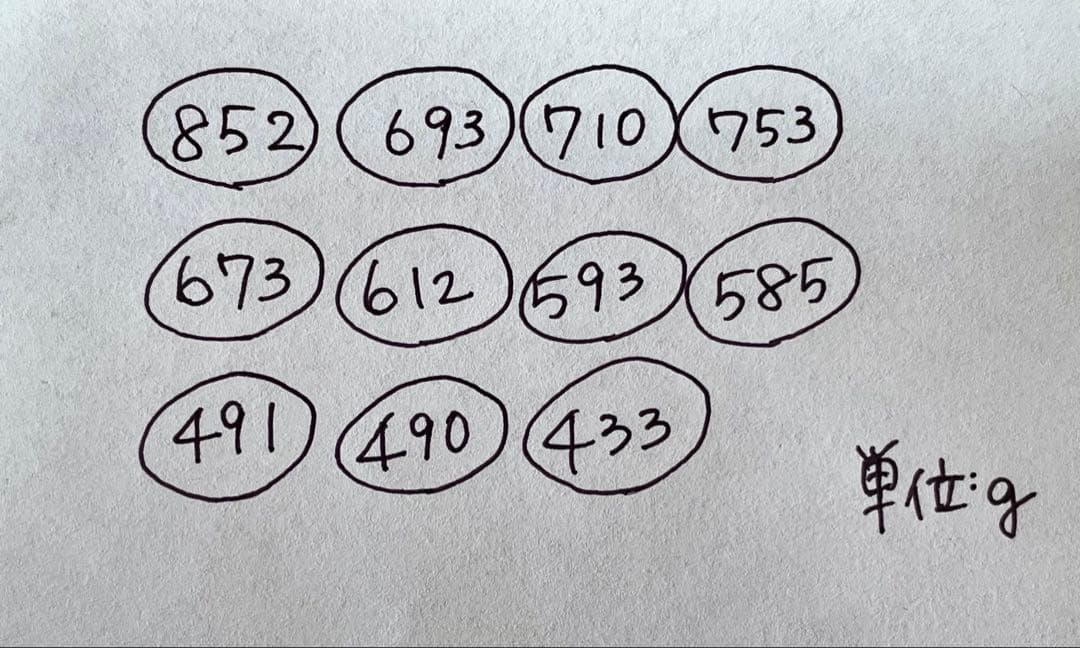 852 693 710 753
673 612 593 585
491 490 433
単位:g